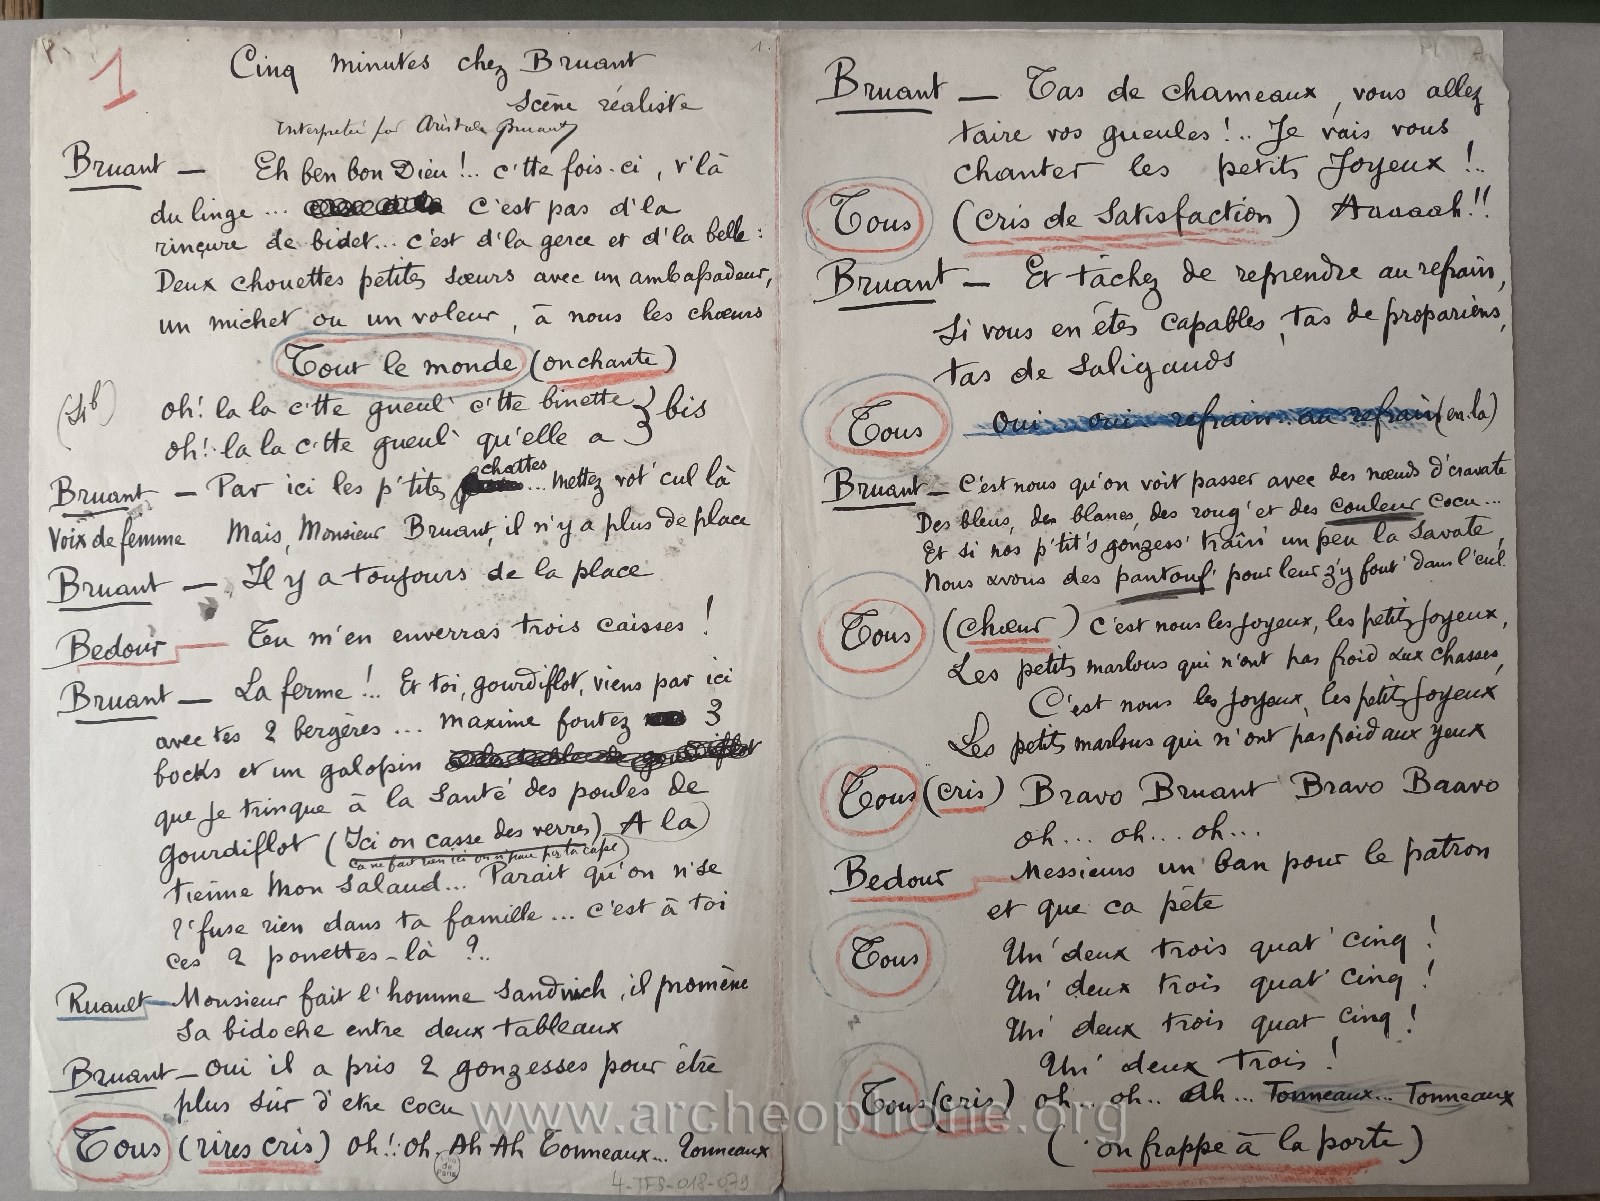 1
1.
Cinq minutes chez Bruant
Scène réaliste
Interprêtée par Aristide Bruant
Bruant — Eh ben bon Dieu !.. c'tte fois-ci, v'là
du linge ... c'est pas d'la
rinçure de bidet... c'est d'la gerce et d'la belle :
Deux chouettes petites sœurs avec un ambassadeur,
un michet ou un voleur, à nous les chœurs
Tout le monde (on chante)
(Si b) oh! la la c'tte gueul' c'tte binette } bis
oh! la la c'tte gueul' qu'elle a
Bruant — Par ici les p'tites chattes ... Mettez vot' cul là
Voix de femme Mais, Monsieur Bruant, il n'y a plus de place
Bruant — Il y a toujours de la place
Bedour — Tu m'en enverras trois caisses !
Bruant — La ferme !.. Et toi, gourdiflot, viens par ici
avec tes 2 bergères ... Maxime foutez 3
bocks et un galopin
que je trinque à la Santé des poules de
gourdiflot (Ici on casse des verres) A la
ça ne fait rien ici on n'paie pas la casse)
tienne mon salaud... Parait qu'on n'se
r'fuse rien dans ta famille ... c'est à toi
ces 2 ponettes-là ?..
Ruault — Monsieur fait l'homme sandwich, il promène
sa bidoche entre deux tableaux
Bruant — Oui il a pris 2 gonzesses pour être
plus sûr d'etre cocu
Tous (rires cris) Oh!. Oh. Ah Ah Tonneaux... Tonneaux
4-TFS-018-079
Bruant — Tas de chameaux, vous allez
taire vos gueules !.. Je vais vous
chanter les petits Joyeux !..
Tous (cris de Satisfaction) Aaaaah!!
Bruant — Et tâchez de reprendre au refrain,
Si vous en êtes capables, tas de propariens,
tas de Saligauds
Tous Oui oui refrain.. au refrain (en la)
Bruant — C'est nous qu'on voit passer avec des nœuds d'cravate
Des bleus, des blancs, des roug' et des couleur cocu...
Et si nos p'tit's gonzess' train' un peu la Savate,
Nous avons des pantouf' pour leur z'y fout' dans l'cul.
Tous (Chœur) C'est nous les Joyeux, les petits Joyeux,
Les petits marlous qui n'ont pas froid aux chasses,
C'est nous les Joyeux, les petits Joyeux
Les petits marlous qui n'ont pas froid aux yeux
Tous (cris) Bravo Bruant Bravo Baavo
oh... oh... oh...
Bedour — Messieurs un ban pour le patron
et que ca pète
Tous Un' deux trois quat' cinq !
Un' deux trois quat' cinq !
Un' deux trois quat cinq !
Un' deux trois !
Tous (cris) oh.. oh.. Ah... Tonneaux... Tonneaux
(on frappe à la porte)
www.archeophone.org